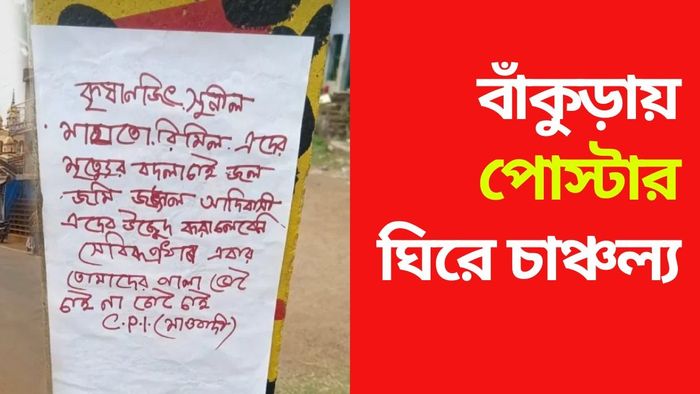 কৃষানজিৎ, সুনীল
মাহাতো. রিমিল. এদের
মৃত্যুর বদলা চাই জল
জমি জঙ্গল আদিবাসী
এদের উচ্ছেদ করা চলবেনা
এবার
তোমাদের পালা ভোট
চাই না ভোট চাই
C.P.I. (মাওবাদী)
বাঁকুড়ায়
পোস্টার
ঘিরে চাঞ্চল্য